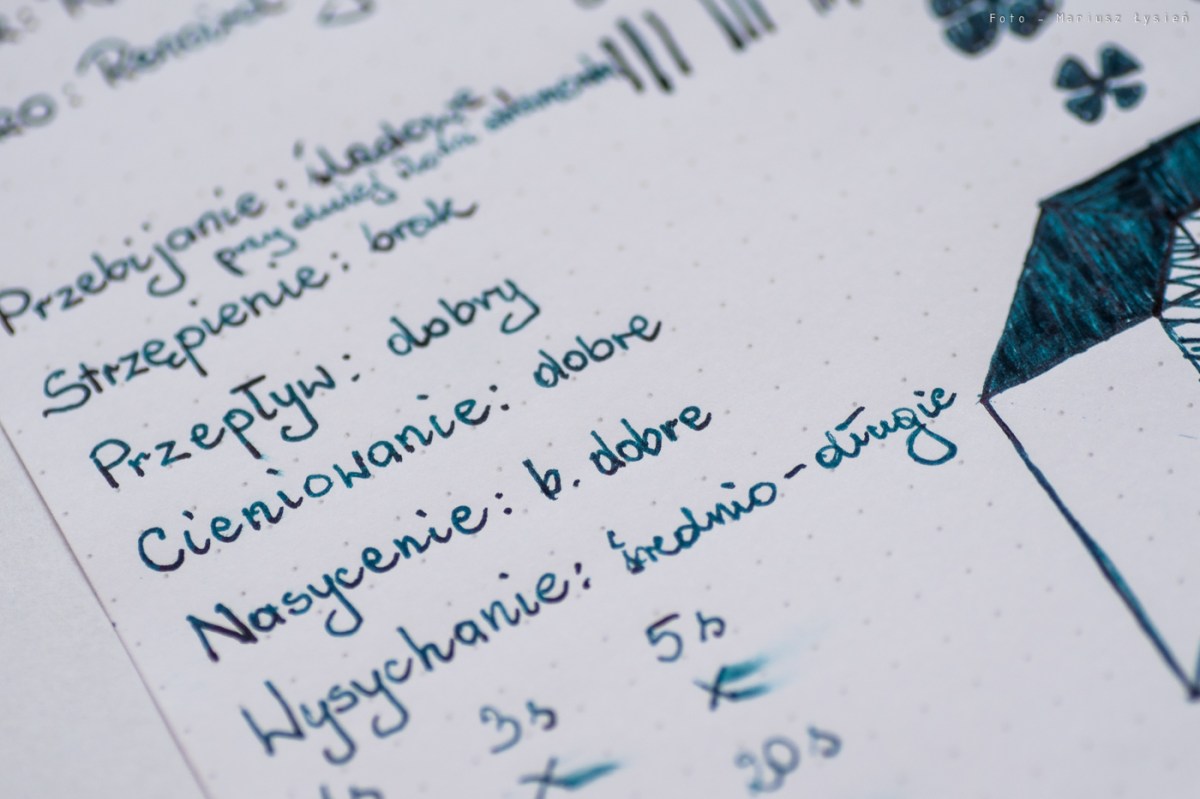 Foto - Mariusz Łysień
Przebijanie: śladowe,
przy dużej ilości atramentu
Strzępienie: brak
Przepływ: dobry
Cieniowanie: dobre
Nasycenie: b. dobre
Wysychanie: średnio-długie
5s
3s
20s